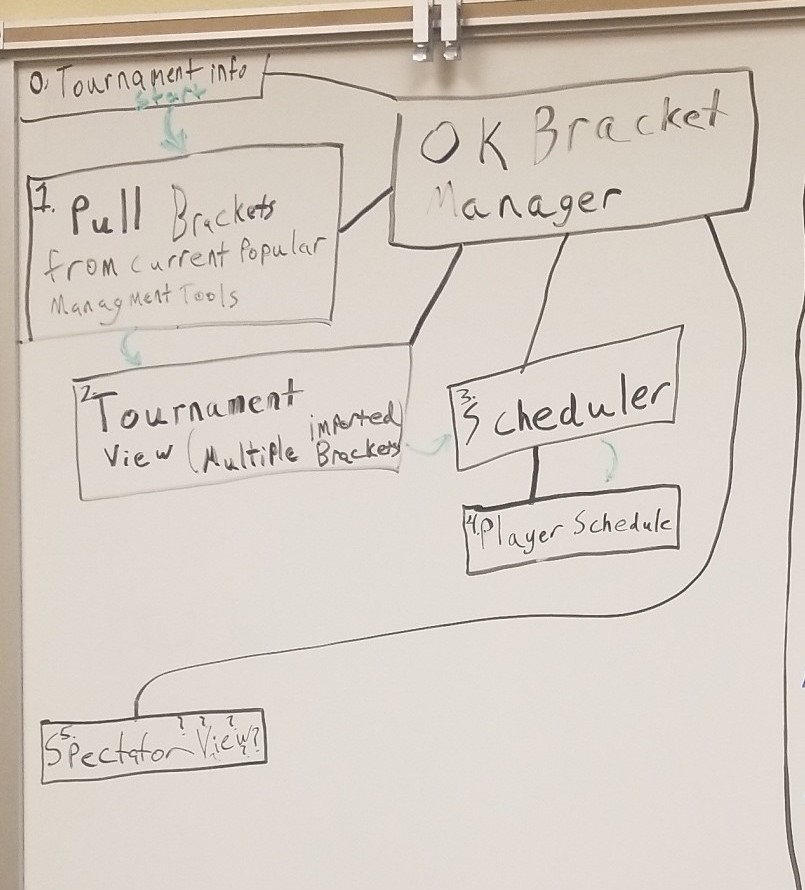 0. Tournament info
Start
OK Bracket
Manager
1. Pull Brackets
from current Popular
Managment Tools
2. Tournament
View (Multiple imported
Brackets)
3. Scheduler
4. Player Schedule
5. ? ? ?
Spectator View?
?